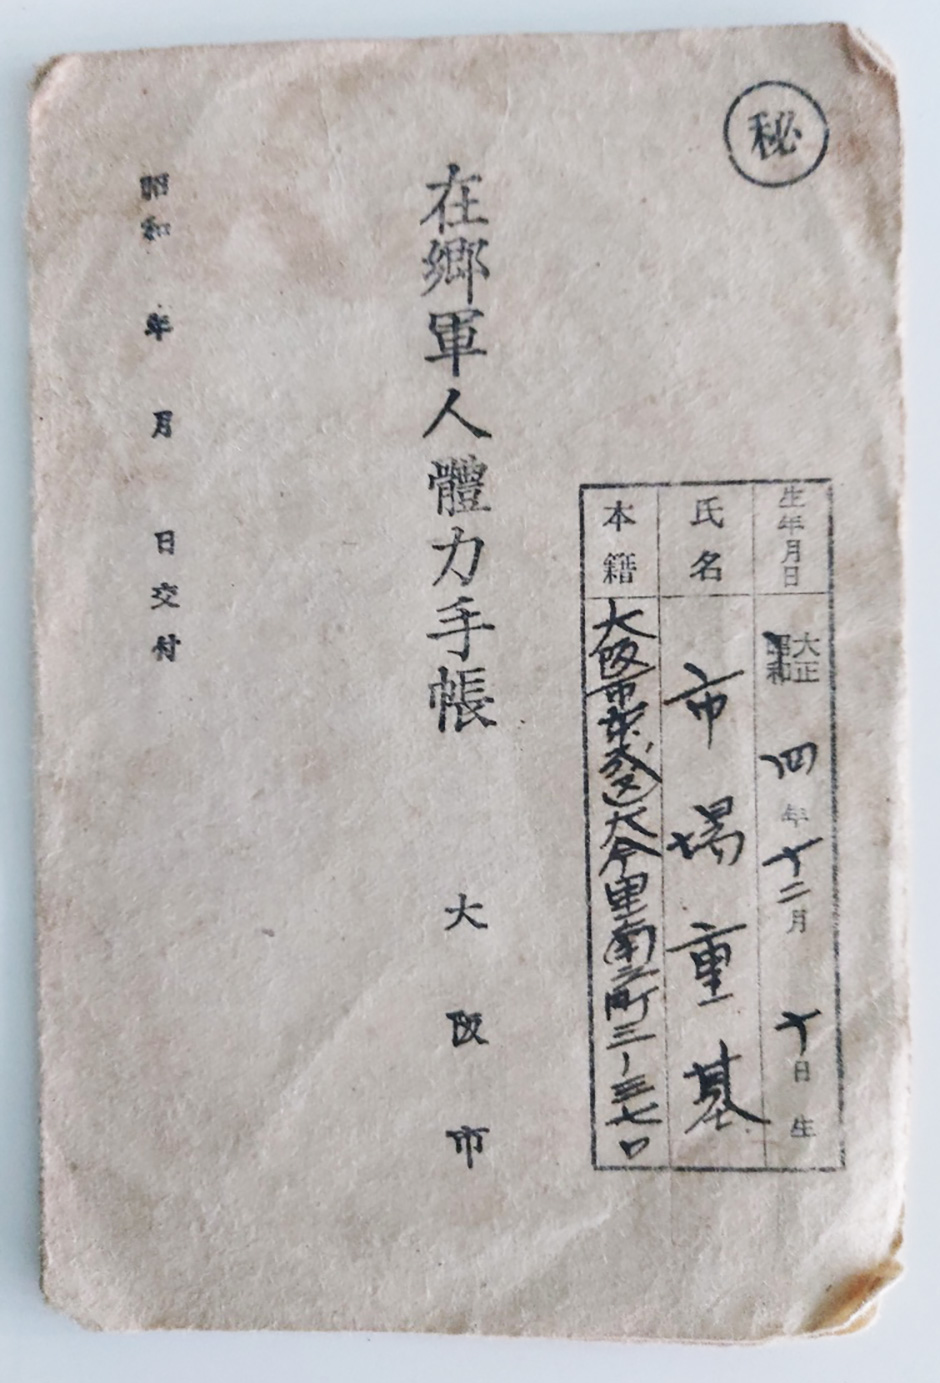 ㊙
生年月日 大正 昭和 四年十二月十日生
氏名 市場重基
本籍 大阪市東成区大今里南之町三ー三七〇
在郷軍人體力手帳
大阪市
昭和 年 月 日交付